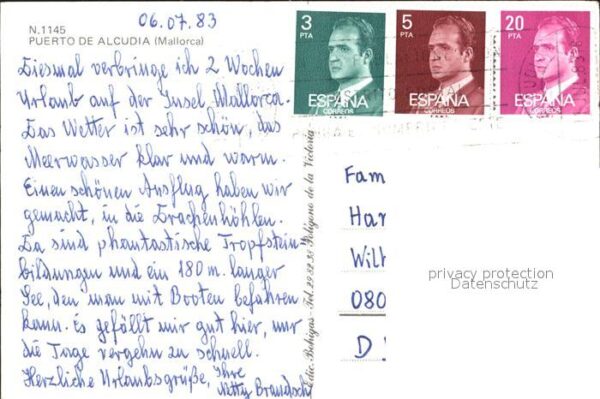 06.07.83
N.1145
PUERTO DE ALCUDIA (Mallorca)
Diesmal verbringe ich 2 Wochen
Urlaub auf der Insel Mallorca.
Das Wetter ist sehr schön, das
Meerwasser klar und warm.
Einen schönen Ausflug haben wir
gemacht, in die Drachenhöhlen.
Da sind phantastische Tropfstein
bildungen und ein 180 m. langer
See, den man mit Booten befahren
kann. Es gefällt mir gut hier, nur
die Tage vergehn zu schnell.
Herzliche Urlaubsgrüße, Ihre
3 PTA
ESPAÑA
CORREOS
5 PTA
ESPAÑA
CORREOS
20 PTA
ESPAÑA
CORREOS
Fam
Har
Wilh
080
D
privacy protection
Datenschutz